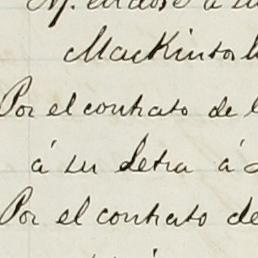 endosé a su
Mackintosh
Por el contrato de
á su Letra á
Por el contrato de